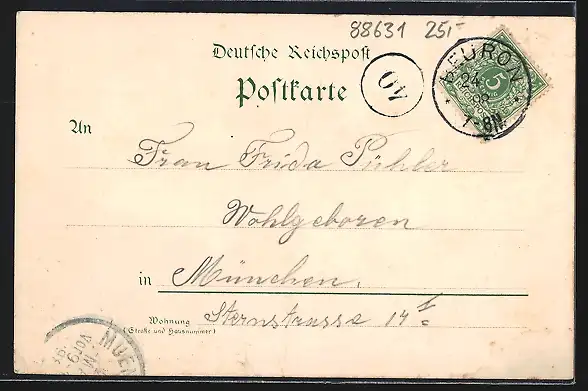 88631 25,-
Deutsche Reichspost
Postkarte
BEURON
5
7-8N.
40
An
Frau Frida Pühler
Wohlgeboren
in München.
Wohnung
(Straße und Hausnummer)
Sternstrasse 14
MUEN